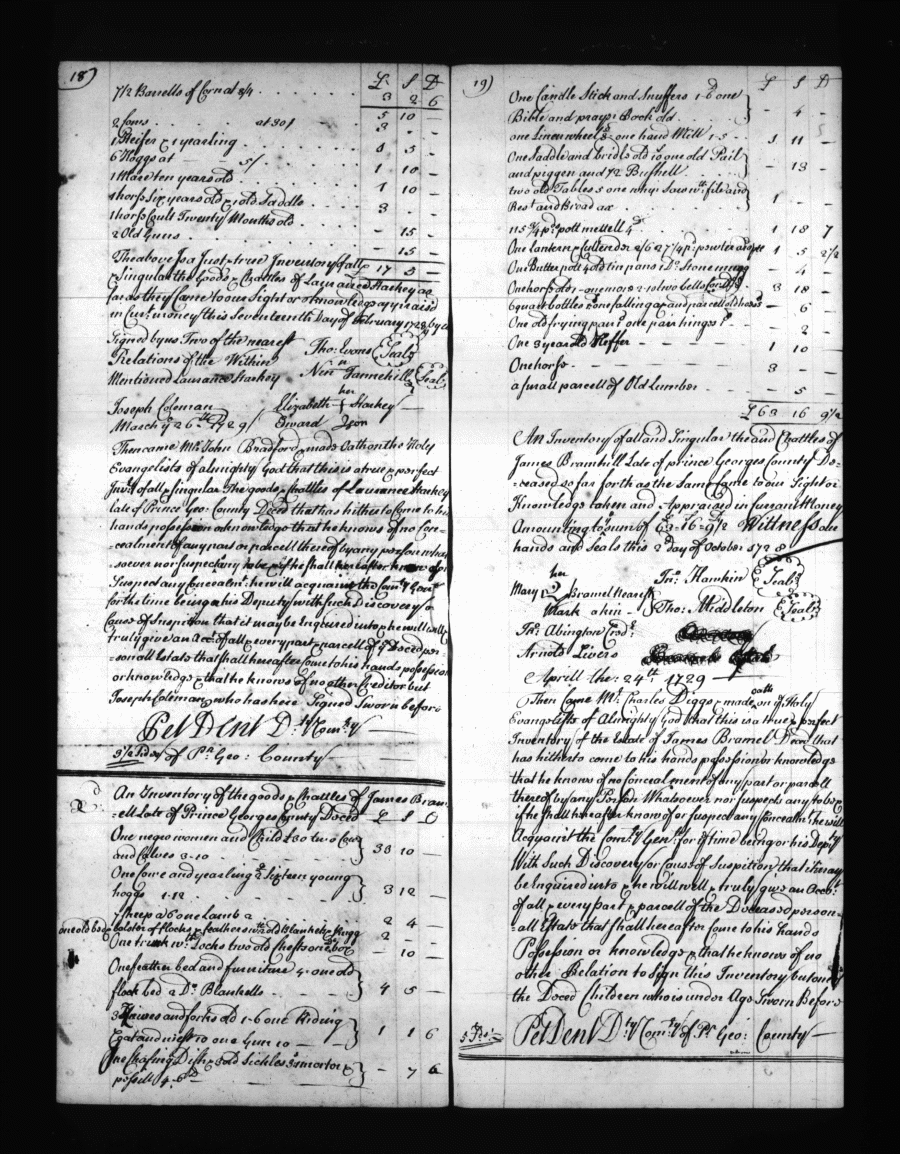 18)
£ S D
7 1/2 Barrells of Corn at 8/4 3 2 6
2 Cows at 30/ 5 10 -
1 Heifer & 1 yearling 3 - -
6 Hoggs at 5/
1 Mare ten years old 1 10 -
1 horse Six years old & old Saddle 1 10 -
1 horse Coult Twenty Months old 3 - -
2 Old Guns - 15 -
- 15 -
The above Is a Just & true Inventory of all 17 5 -
& Singular the Goods & Chattles of Laurance Starkey as
far as they Came to our Sight or knowledge appraised
in Curr. money this Seventeenth Day of February 1728 by
Signed by us Two of the nearest Tho: Evons Seal
Relations of the Within Nin Tannehill Seal
Mentioned Laurance Starkey
her
Joseph Coleman Elizabeth Starkey
March ye 26th 1729
Then came Mr. John Bradford & made Oath on the Holy
Evangelists of almighty God that this is a true & perfect
Inv. of all & Singular The goods & Chattles of Laurance Starkey
late of Prince Geo: County Deced that has hitherto Come to his
hands possession or knowledge that he knows of no Con-
=cealment of any part or parcell thereof by any person what
soever nor suspect any to be & if he shall hereafter know of or
Suspect any Concealmt. he will acquaint the Comry Genl.
for the time being or his Deputy with such Discovery or
Cause of Suspition that it may be Enquired into & he will well &
truly give an Acct. of all & every part & parcell of ye Deced per-
sonall Estate that shall hereafter come to his hands possession
or knowledge & that he knows of no other Creditor but
Joseph Coleman who has here Signed Sworn before
Pet Dent Dty Comry
of Pr Geo: County
An Inventory of the goods & Chattles of James Bram-
=ell Late of Prince Georges County Deced £ S D
One negro woman and Child £30 two Cows
and Calves 3-10 33 10 -
One Cowe and yearling Sixteen young
hoggs 1-12 3 12 -
sheep one Lamb 2 4 -
one old bed & bolster of flocks & feathers wth. old Blanket & Rugg 2 - -
One trunk wth. Locks two old Chests one box - 10 -
One feather bed and furniture 4 - one old
flock bed 2 Do. Blanketts 4 5 -
Knives and forks old 1-6 one Riding
Coat and vest one Gun 10 1 1 6
One Chafing Dish & old Sickles mortar &
pestill 4-6 - 7 6
19)
£ S D
One Candle Stick and Snuffers 1-6 one
Bible and prayr. Book old - 4 -
one Linen wheel one hand Mill 1-5 3 11 -
One Saddle and bridle old one old Pail
and piggen and 1/2 Bushell - 13 -
two old Tables 5 one whip Saw wth. file and
Rest and Broad ax 1 - -
115 3/4 pd. pott mettell 4d 1 18 7
One lantern & Cullender 2/6 pewter 1 5 2 1/2
One Butter pott 4 old tin pans 1 Do. Stone mugg - 4 -
One horse one more 2-10 two bells 3 18 -
6 quart bottles & one falling ax and parcell old hoes - 6 -
One old frying pan & one pair hinges - 2 -
One 3 year old Heffer 1 10 -
One horse 3 - -
a small parcell of Old Lumber - 5 -
£ 63 16 9 1/2
An Inventory of all and Singular the and Chattles of
James Bramhill Late of prince Georges County De-
=ceased so far forth as the Same Came to our Sight or
Knowledge taken and Appraised in Currant Money
Amounting to ye sum of 63-16-9 1/2 Wittness our
hands and Seals this 2d day of October 1728
her Jno. Hawkin Seal
Mary Bramel Nearest
Mark of kin Tho: Middleton Seal
Jno. Abington Credr.
Arnold Livers
Aprill the 24th 1729
Then Came Mr. Charles Diggs & made oath on ye Holy
Evangelists of Almighty God that this is a true & perfect
Inventory of the Estate of James Bramel Deced that
has hitherto come to his hands possession or knowledge
that he knows of no Concealment of any part or parcell
thereof by any Person Whatsoever nor suspects any to be &
if he shall hereafter know of or suspect any Concealmt. he will
Acquaint the Comry Genl. for ye time being or his Depty
With Such Discovery or Cause of Suspition that it may
be Inquired into & he will well & truly give an Acct.
of all & every part & parcell of the Deceased person-
=all Estate that shall hereafter come to his hands
Possession or knowledge & that he knows of no
other Relation to Sign this Inventory but one
the Deced Children who is under Age Sworn Before
Pet Dent Dty Comry of Pr Geo: County